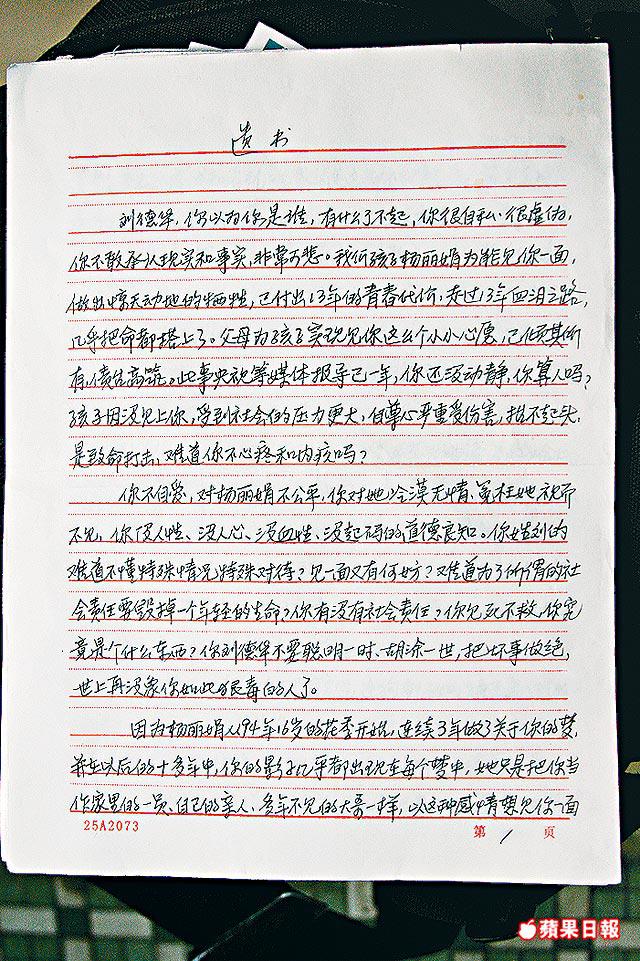 遗书
刘德华,你以为你是谁,有什么了不起,你很自私、很虚伪,
你不敢承认现实和事实,非常可悲。我们孩子杨丽娟为能见你一面,
做出惊天动地的牺牲,已付出13年的青春代价,走过13年血泪之路,
几乎把命都搭上了。父母为孩子实现见你这么个小小心愿,已倾其所
有,债台高筑。此事央视等媒体报导已一年,你还没动静,你算人吗?
孩子因没见上你,受到社会的压力更大,自尊心严重受伤害,抬不起头,
是致命打击,难道你不心疼和内疚吗?
你不自爱,对杨丽娟不公平,你对她冷漠无情、冤枉她视而
不见,你没人性、没人心、没血性、没起码的道德良知。你姓刘的
难道不懂特殊情况特殊对待?见一面又有何妨?难道为了所谓的社
会责任要毁掉一个年轻的生命?你有没有社会责任?你见死不救,你究
竟是个什么东西?你刘德华不要聪明一时、胡涂一世,把坏事做绝,
世上再没象你如此狠毒的人了。
因为杨丽娟从94年16岁的花季开始,连续3年做了关于你的梦,
并在以后的十多年中,你的影子几乎都出现在每个梦中,她只是把你当
作家里的一员、自己的亲人、多年不见的大哥一样,以这种感情想见你一面
25A2073
第 1 页
蘋果日報